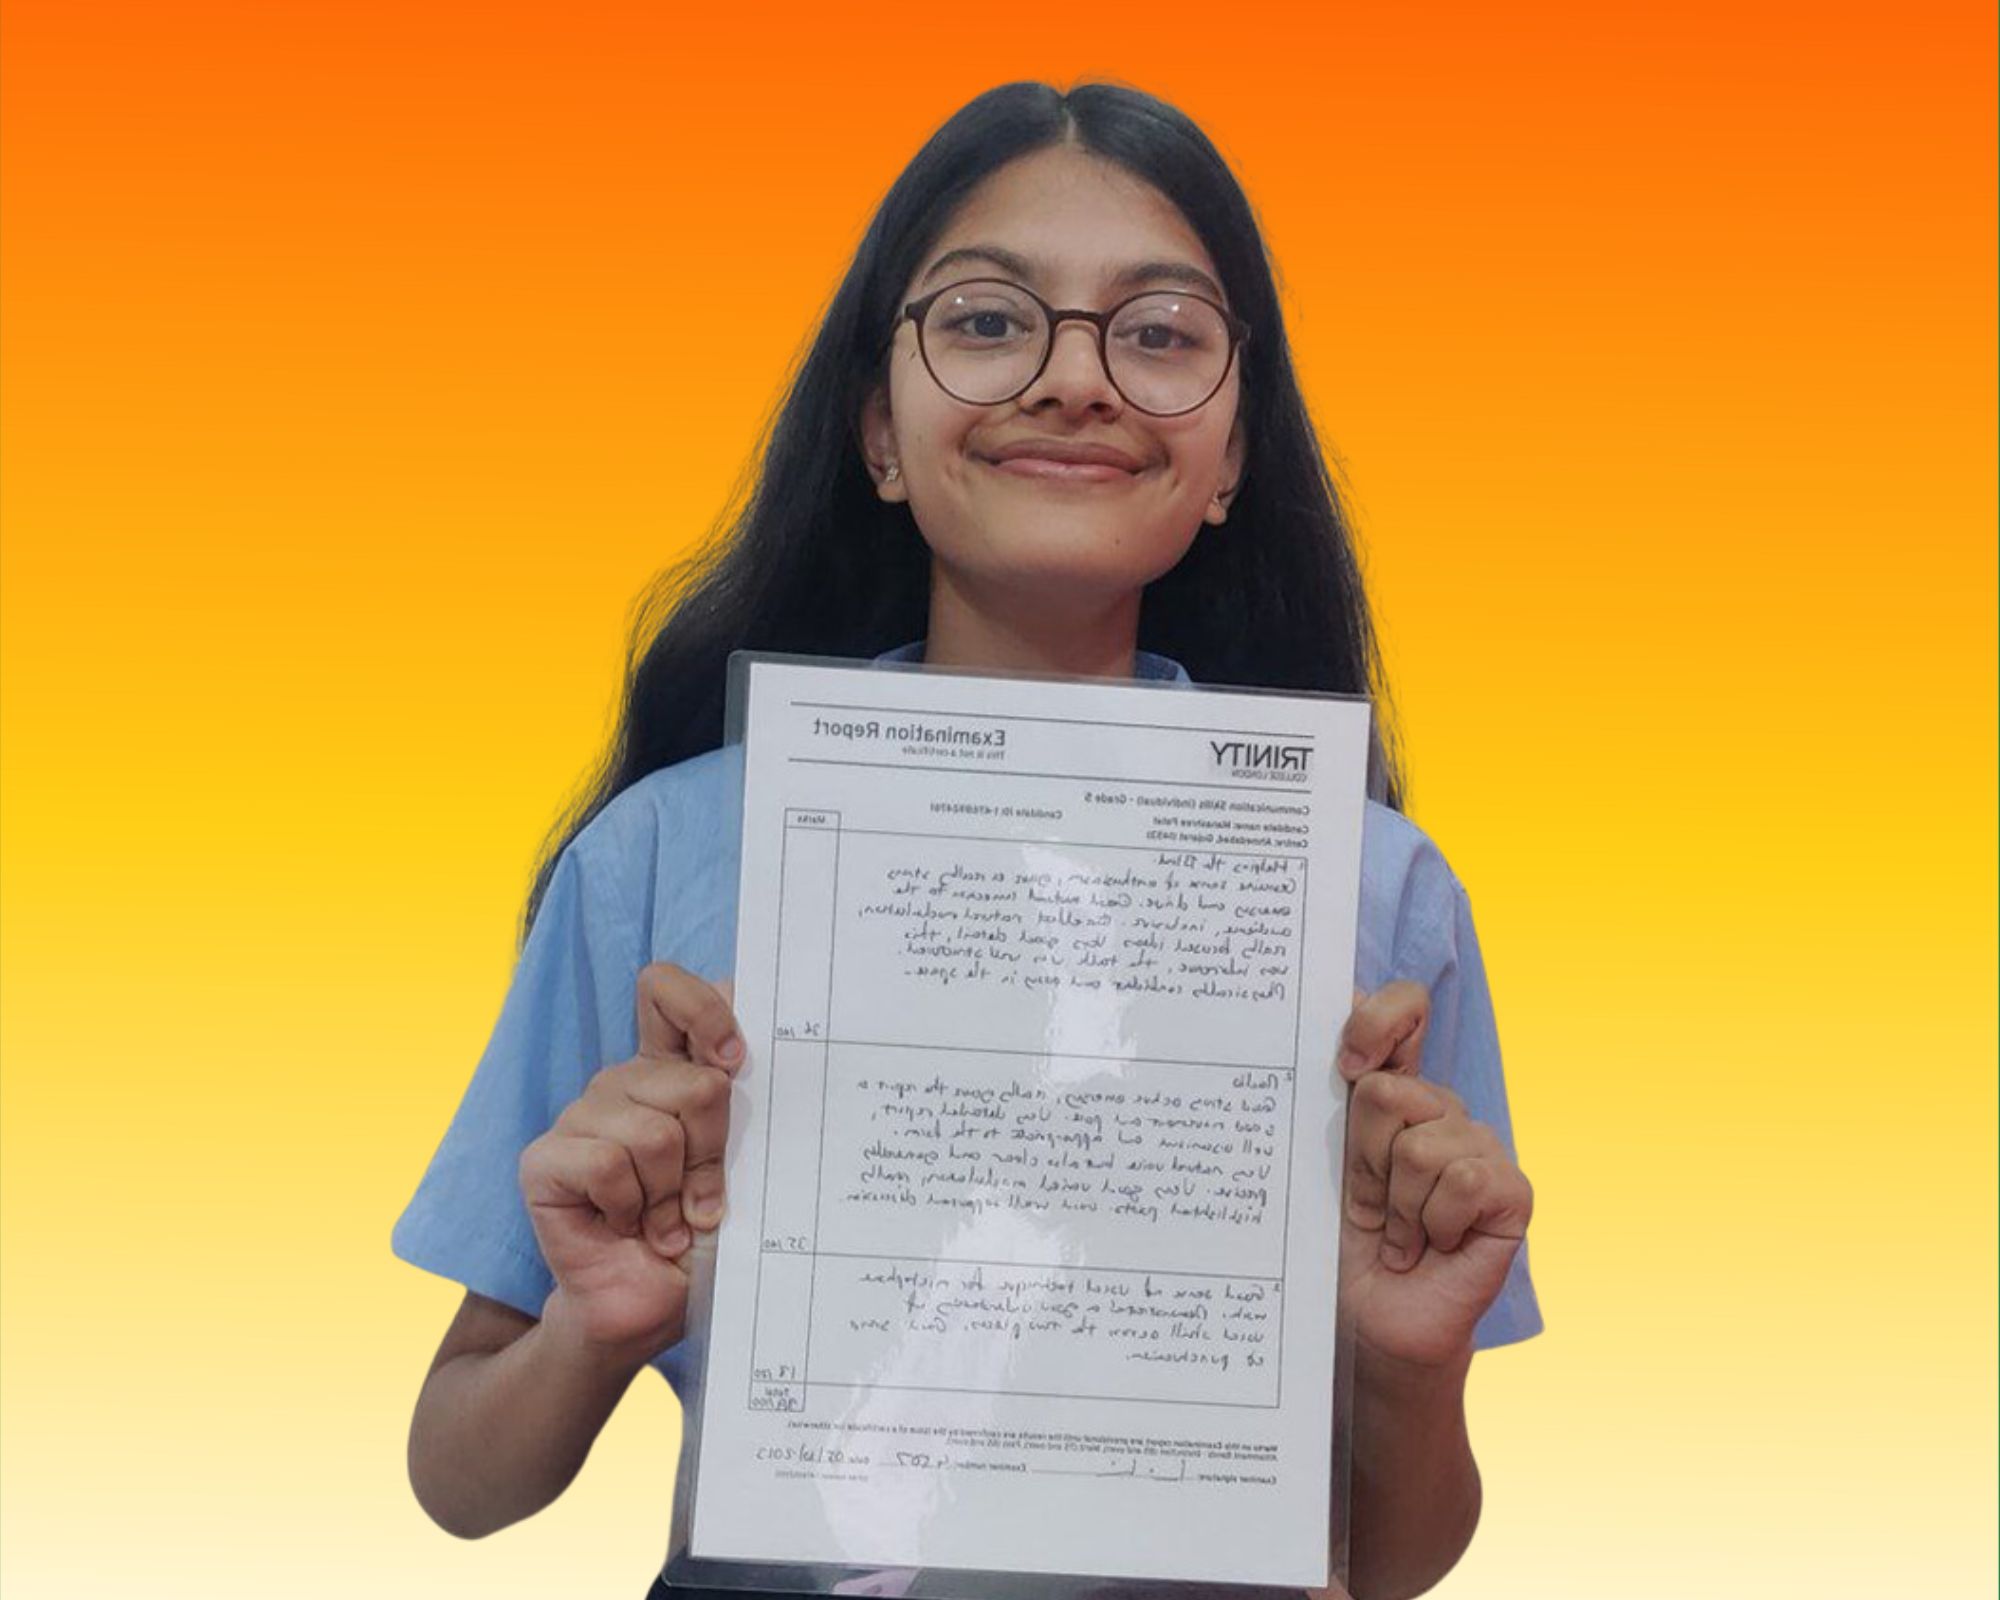 TRINITY
COLLEGE LONDON
Examination Report
This is not a certificate
Communication Skills (Individual) - Grade 5
Candidate name: Manashree Patel
Candidate ID: 1-4768924761
Centre: Ahmedabad, Gujarat (0452)
Marks
1 Helping the Blind.
Genuine sense of enthusiasm, gave a really strong
energy and drive. Good mutual to the
audience, inclusive. Excellent natural modulation,
really focused ideas Very good detail, this
was immersive, the talk was well structured.
Physically confident and easy in the space.
36/40
2 Media
Good strong active energy, really gave the report a
good movement and pace. Very detailed report,
well organised and appropriate to the form.
Very natural voice but also clear and generally
precise. Very good varied modulation, really
highlighted parts. discussion.
35/40
3 Good sense of vocal technique for microphone
work. Demonstrated a good understanding of
vocal skill across the two pieces. Good sense
of punctuation.
Total
Marks on this Examination report are provisional until the results are confirmed by the issue of a certificate (or otherwise).
Attainment Bands: Distinction (85 and over), Merit (75 and over), Pass (65 and over).
Examiner signature:
Examiner number:
Date